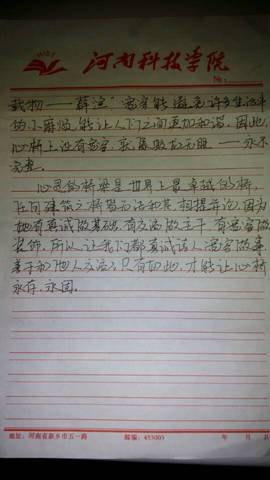 HIST
河南科技学院
№:
载物——薛渲”宽容能避免许多生活中
的小麻烦,能让人们之间更加和谐。因此,
心桥上没有宽容,就 —— 永不
完整。
心灵的桥梁是世界上最卓越的桥,
任何建筑之桥梁无法和其相提并论,因为
她有真诚做基础,有交流做主干,有宽容做
装饰。所以让我们都真诚待人,宽容做事,
善于和他人交流,只有如此,才能让心桥
永存、永固。
地址:河南省新乡市五一路 邮编:453003 年 月 日